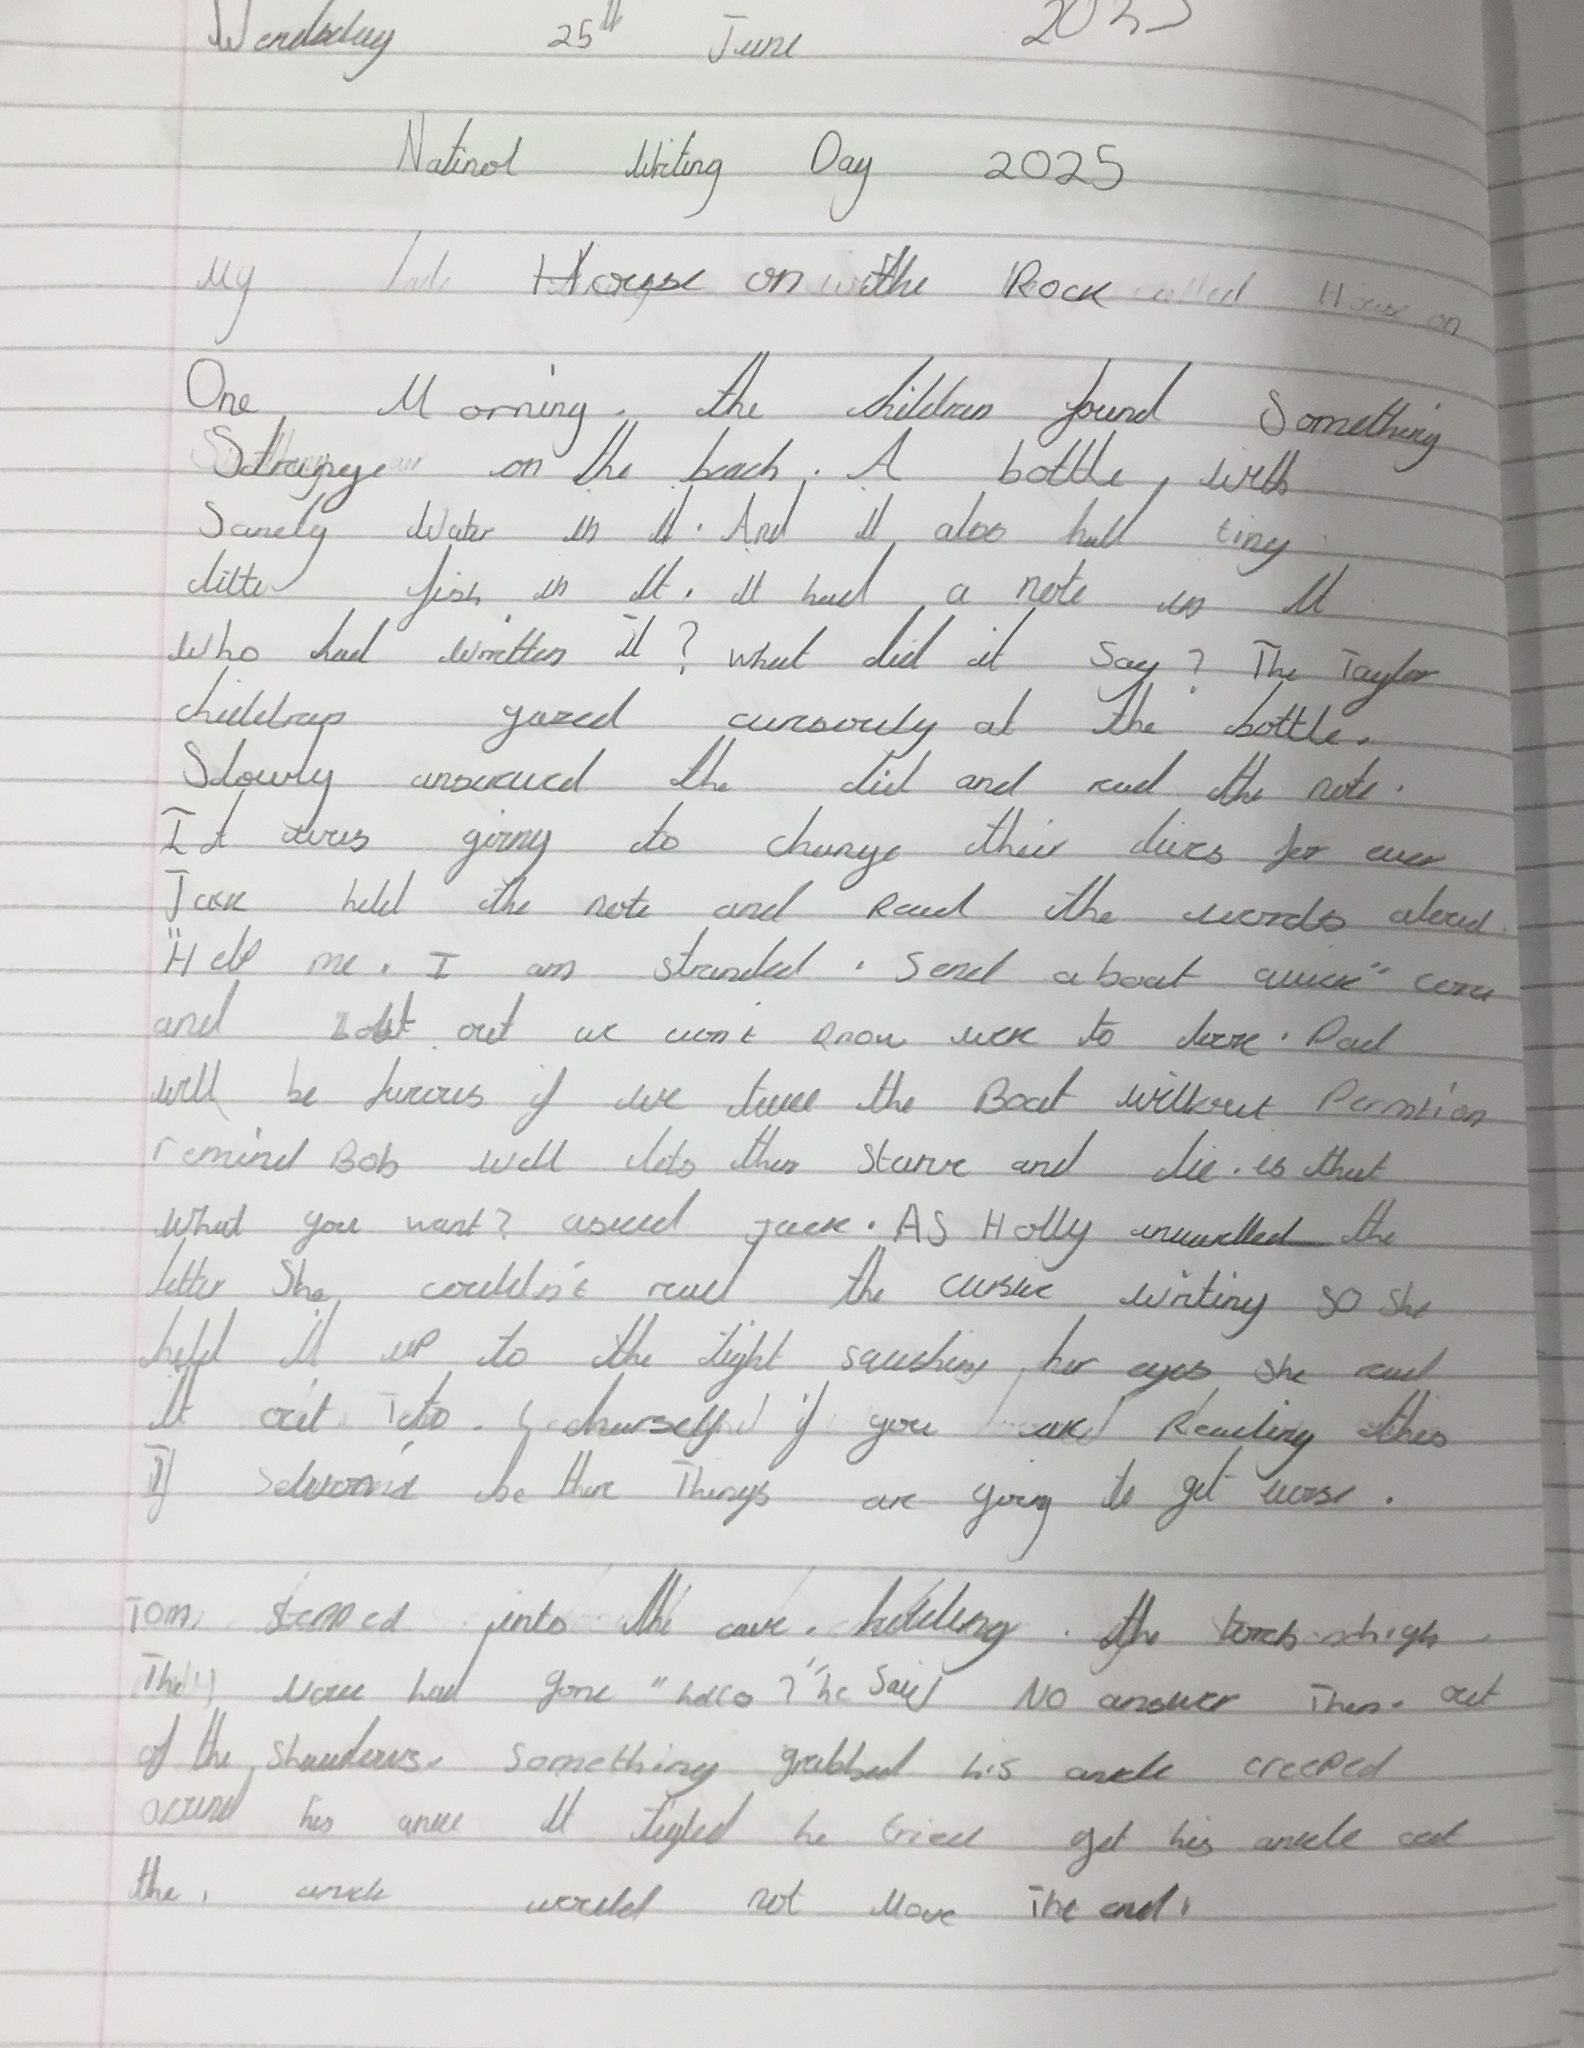 Wendsday 25th June
Natinol Writing Day 2025
My House on the Rock
One Morning. the children found Something
Strange on the beach. A bottle, with
Water in it. And it also had tiny
fish in it. it had a note in it
who had written it? what did it say? The Taylor
gazed at the bottle.
Slowly the lid and read the note.
It was going to change their lives for ever
Jack held the note and Read the words aloud.
"Help me. I am stranded. Send a boat quick"
and out we won't know were to look. Dad
will be furious if we take the Boat without
remind Bob well lets then starve and die. is that
what you want? asked Jack. AS Holly the
letter She couldn't read the writing so she
held it up to the light her eyes she read
it out to herself if you are Reading this
If be there Things are going to get worse.
Tom stepped into the cave. holding the torch high
had gone "hello?" he said NO answer Then. out
of the Something grabbed his creeped
his it he tried get his ankle out
the, would not Move The end.